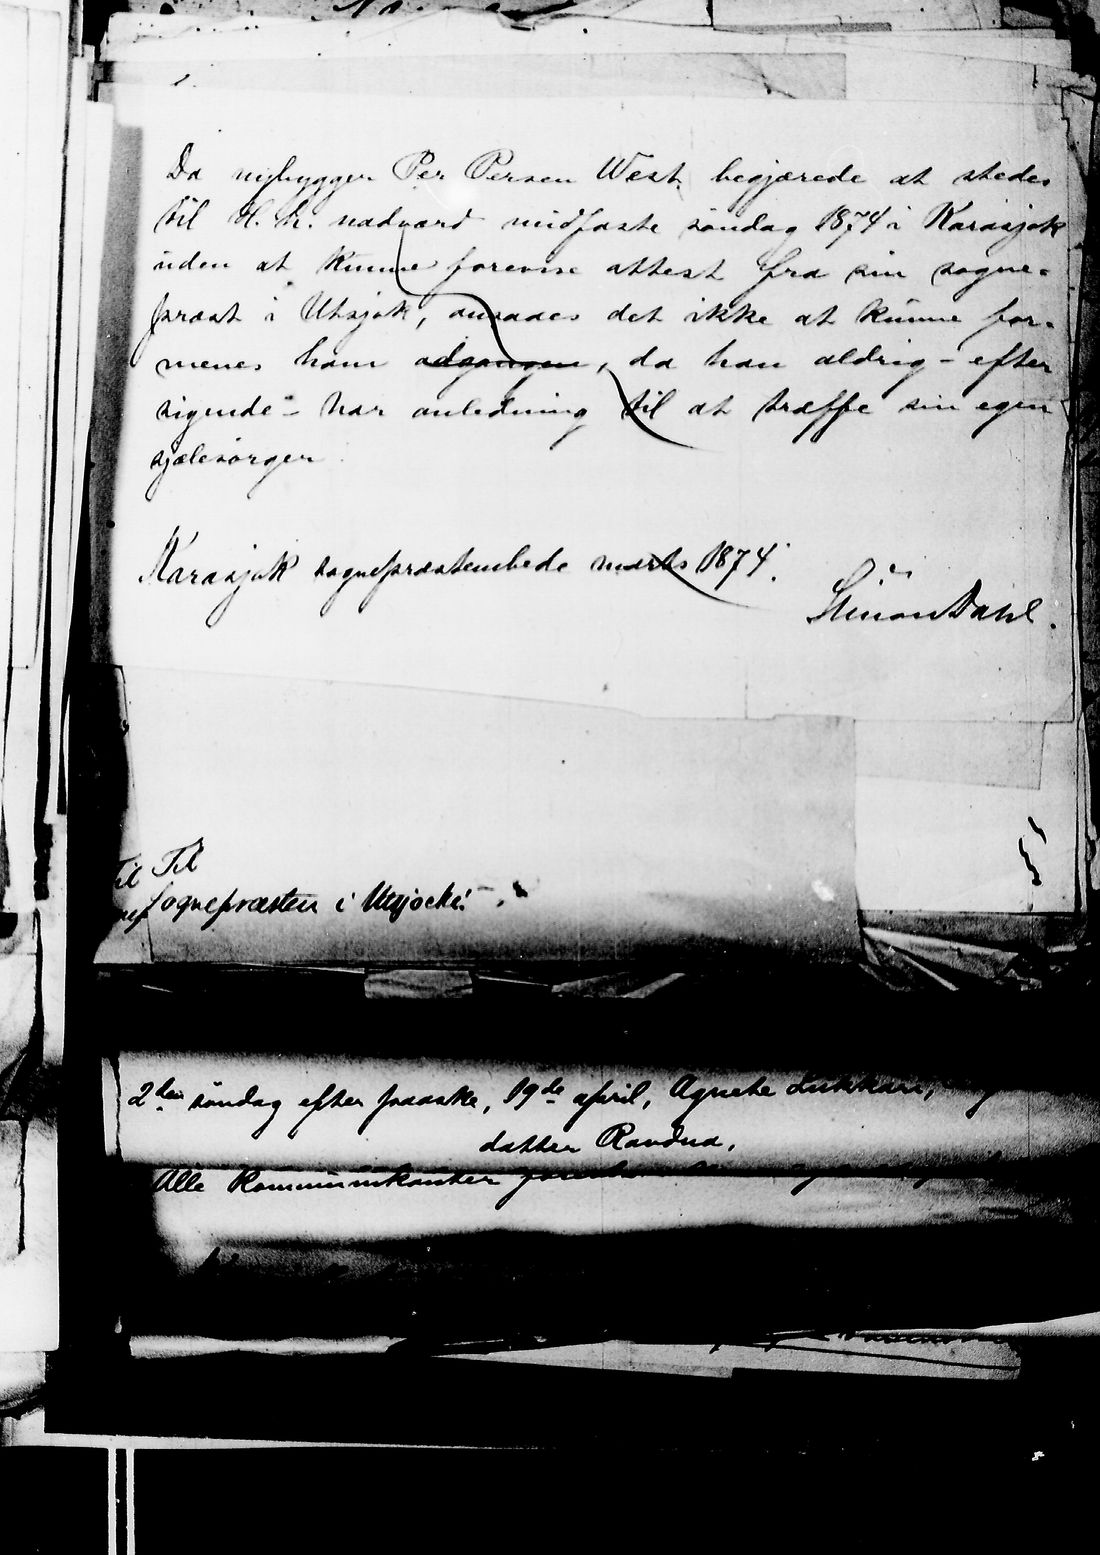 Da nybygger Per Persen West begjærede at stedes
til H. h. nadverd midfaste søndag 1874 i Karasjok
uden at kunne forevise attest fra sin sogne-
præst i Utsjok, ansaaes det ikke at kunne for-
menes ham adgangen, da han aldrig - efter
sigende - har anledning til at træffe sin egen
sjælesørger.
Karasjok sognepræstembede marts 1874.
Simon Dahl.
Til Til
Sognepræsten i Utsjocki.
2den søndag efter paaske, 19de april, Agnete Lukkari,
datter Ravdna.
Alle kommunikanter